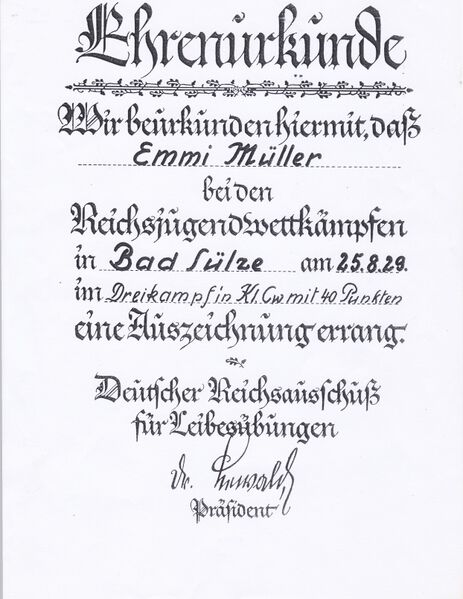 Ehrenurkunde
Wir beurkunden hiermit, daß
Emmi Müller
bei den
Reichsjugendwettkämpfen
in Bad Sülze am 25.8.29.
im Dreikampf in Kl. Cw mit 40 Punkten
eine Auszeichnung errang.
Deutscher Reichsausschuß
für Leibesübungen
Dr. Lewald,
Präsident